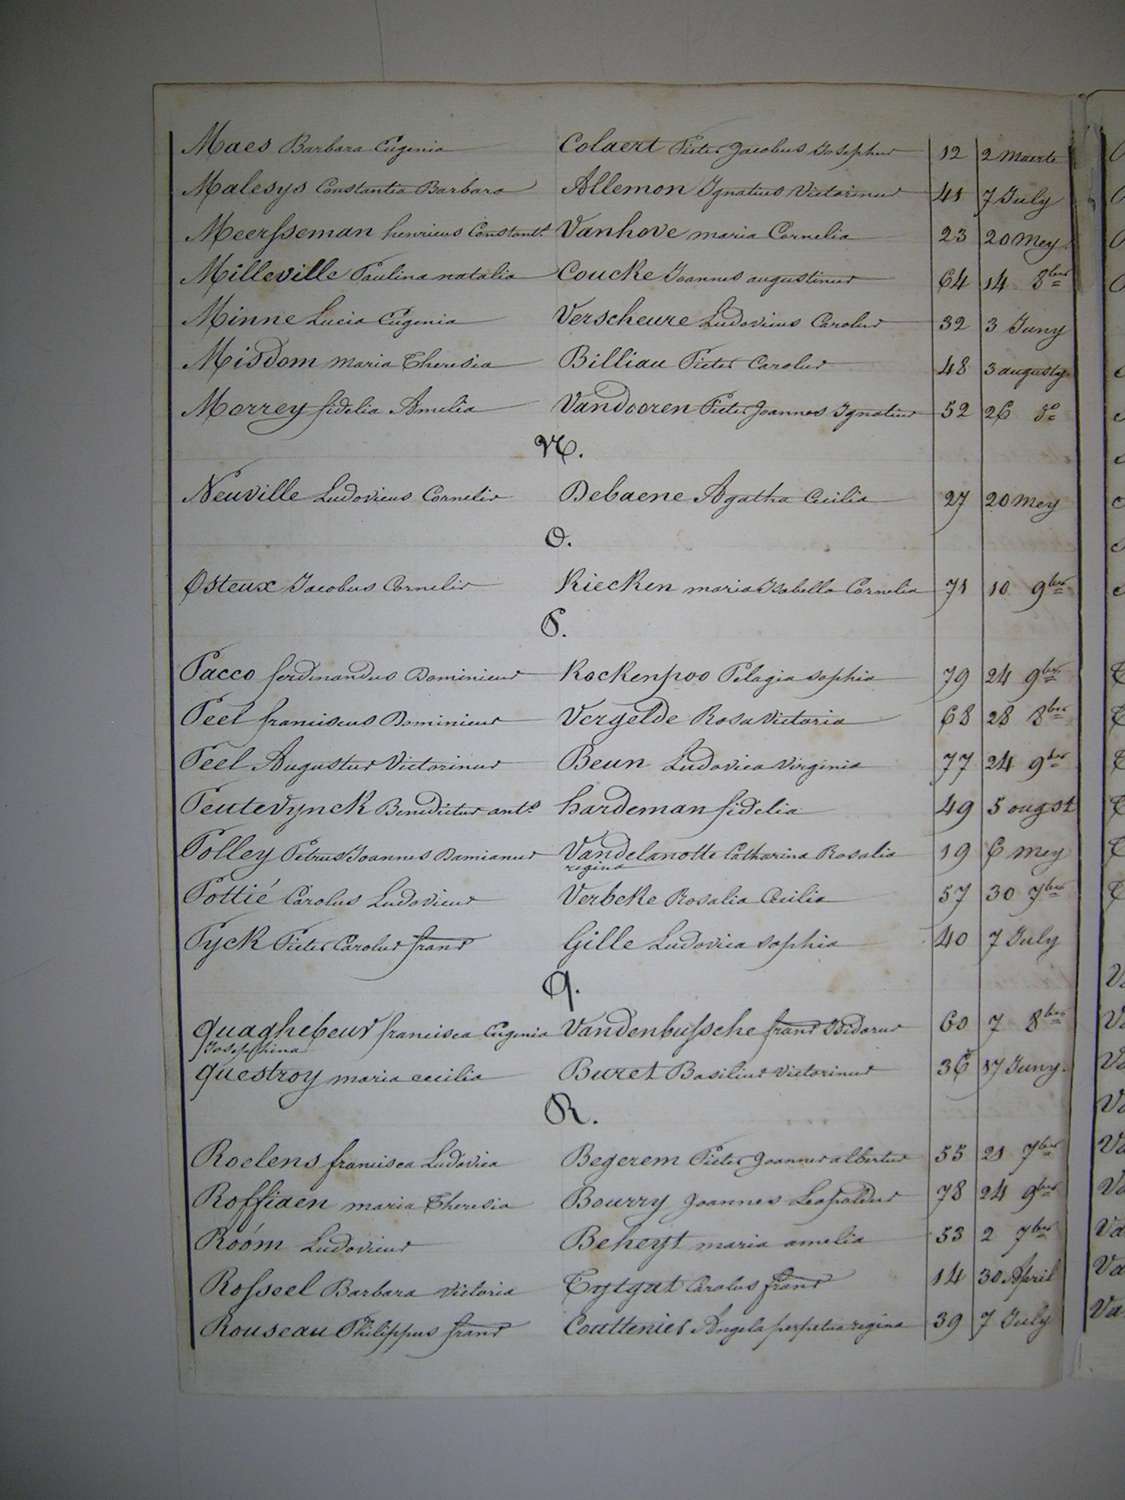 Maes Barbara Eugenia Colaert Pieter Jacobus Josephus 12 2 Maerte
Malesys Constantia Barbara Allemon Ignatius Victorinus 41 7 July
Meersseman henricus Constant.s Vanhove maria Cornelia 23 20 Mey
Milleville Paulina natalia Coucke Joannes augustinus 64 14 8ber
Minne Lucia Eugenia Verscheure Ludovicus Carolus 32 3 Juny
Misdom maria Theresia Billiau Pieter Carolus 48 3 augusty
Morrey fidelia Amelia Vandooren Pieter Joannes Ignatius 52 26 do
N.
Neuville Ludovicus Cornelis Debaene Agatha Cecilia 27 20 Mey
O.
Osteux Jacobus Cornelis Kiecken maria Isabella Cornelia 71 10 9ber
P.
Pacco ferdinandus Dominicus Kockenpoo Pelagia sophia 79 24 9ber
Peel franciscus Dominicus Vergelde Rosa Victoria 68 28 8ber
Peel Augustus Victorinus Beun Ludovica Virginia 77 24 9ber
Peutevynck Benedictus ant.s hardeman fidelia 49 5 ougst
Polley Petrus Joannes Damianus Vandelanotte Catharina Rosalia 19 6 Mey
regina
Pottié Carolus Ludovicus Verbeke Rosalia Cecilia 57 30 7ber
Pyck Pieter Carolus frans Gille Ludovica sophia 40 7 July
Q.
quaghebeur francisca Eugenia Vandenbussche frans Isidorus 60 7 8ber
Josephina
questroy maria cecilia Buret Basilius Victorinus 36 17 Juny.
R.
Roelens francisca Ludovica Begerem Pieter Joannes albertus 55 21 7ber
Roffiaen maria Theresia Bourry Joannes Leopoldus 78 24 9ber
Róóm Ludovicus Beheyt maria amelia 53 2 7ber
Rosseel Barbara Victoria Tytgat Carolus frans 14 30 April
Rouseau Philippus frans Coutteníer Angela perpetua regina 39 7 July